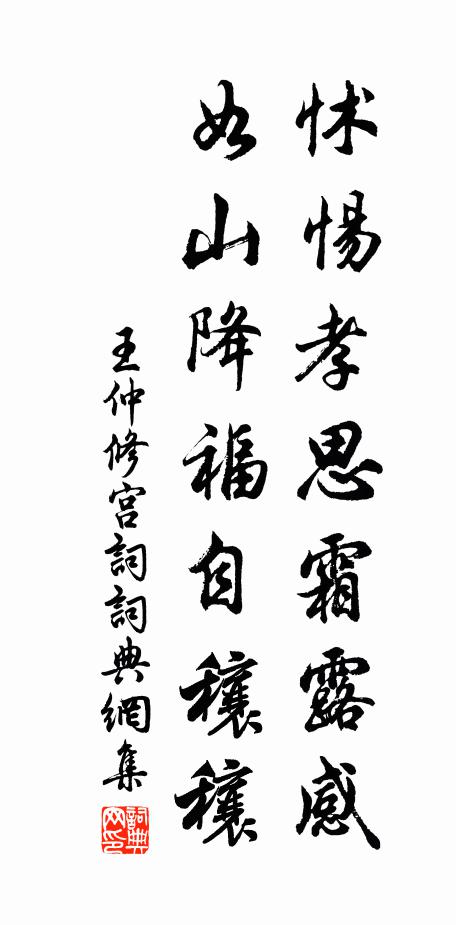 怵惕孝思霜露感
如山降福自穰穰
王仲修宫詞詞典網集
詞典
网印